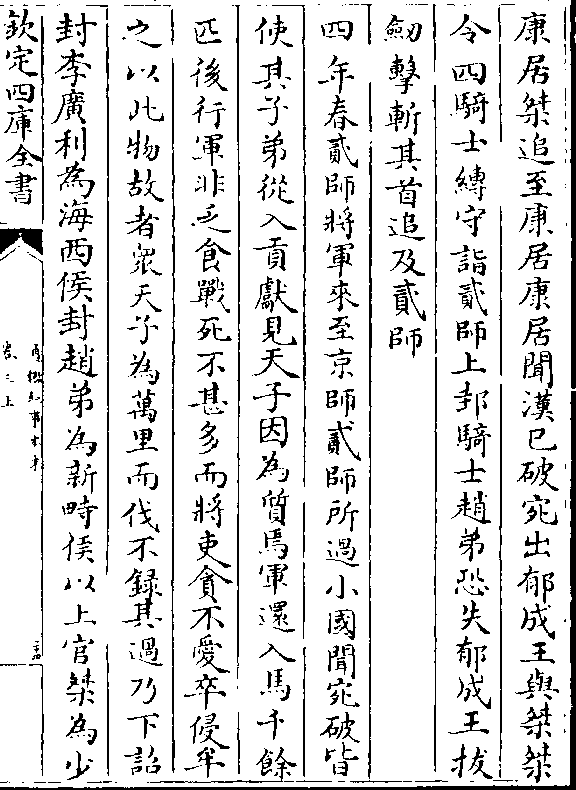 康居桀追至康居康居聞漢已破宛出郁成王與桀桀
令四騎士縛守詣貳師上邽騎士趙弟恐失郁成王拔
劒擊斬其首追及貳師
四年春貳師將軍來至京師貳師所過小國聞宛破皆
使其子弟從入貢獻見天子因為質焉軍還入馬千餘
匹後行軍非乏食戰死不甚多而將吏貪不愛卒侵牟
之以此物故者衆天子為萬里而伐不録其過乃下詔
封李廣利為海西侯封趙弟為新畤侯以上官桀為少
欽定四庫全書
卷三上